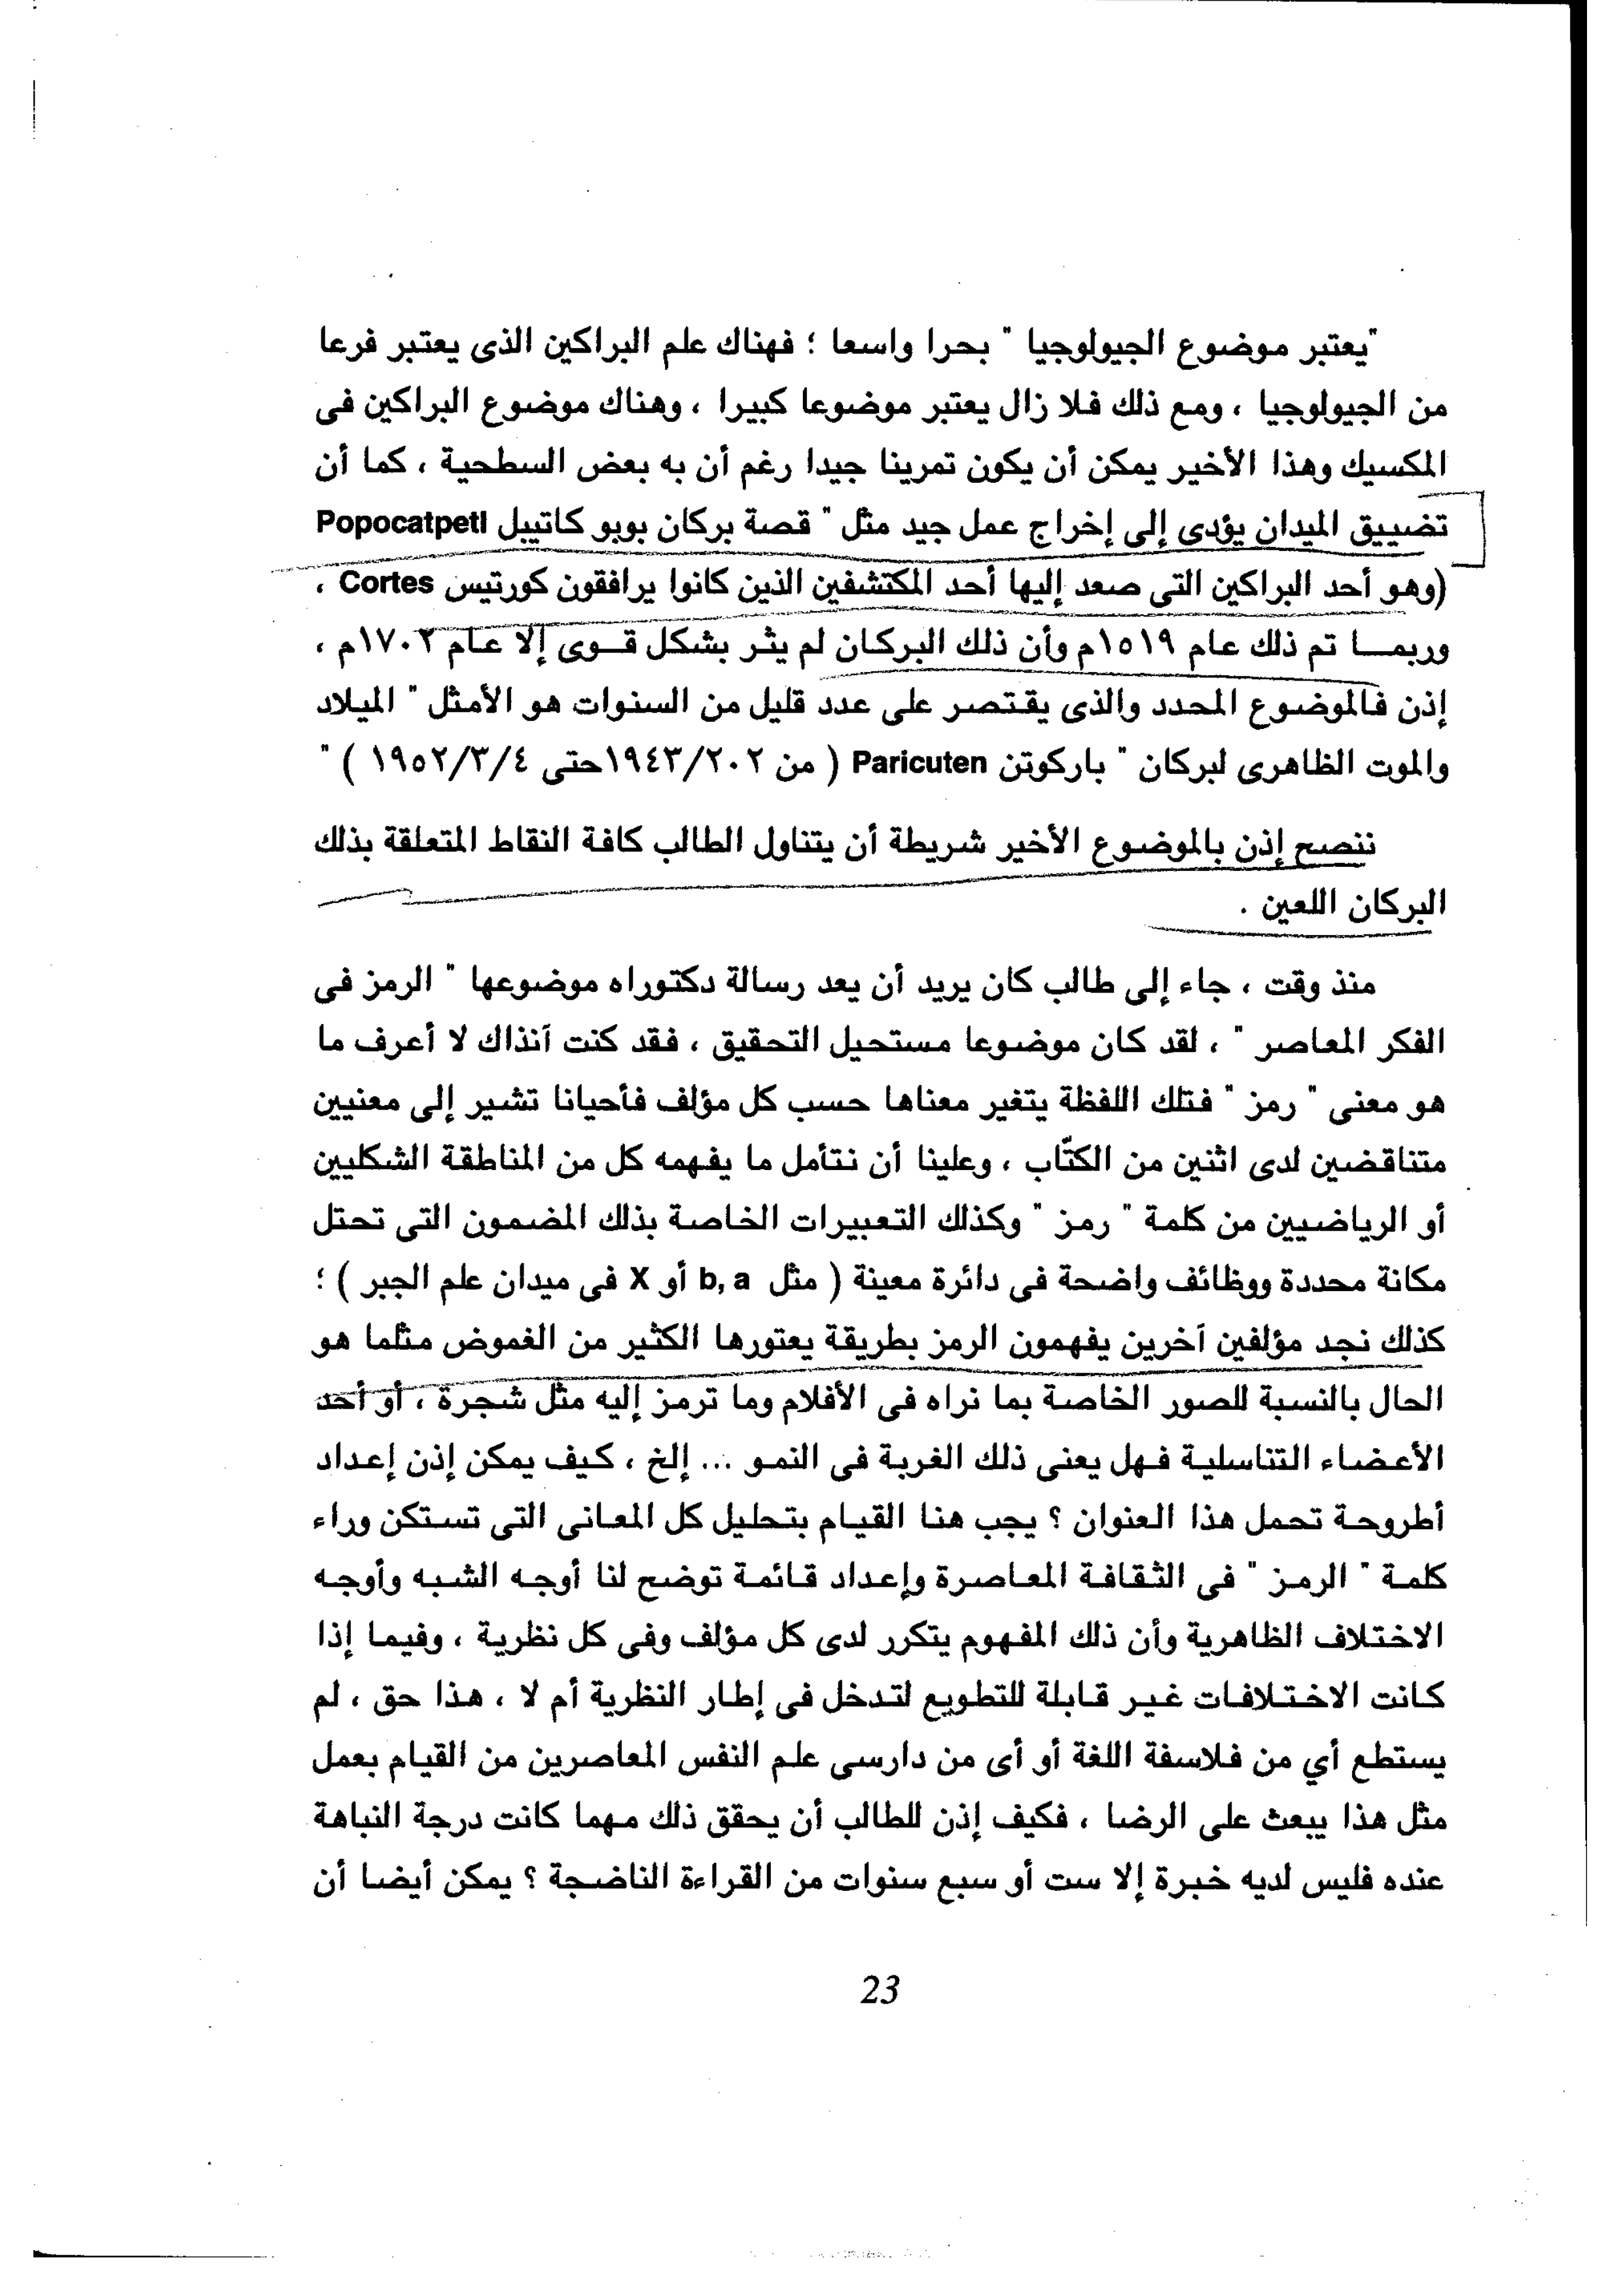 "يعتبر موضوع الجيولوجيا " بحرا واسعا ؛ فهناك علم البراكين الذى يعتبر فرعا
من الجيولوجيا ، ومع ذلك فلا زال يعتبر موضوعا كبيرا ، وهناك موضوع البراكين فى
المكسيك وهذا الأخير يمكن أن يكون تمرينا جيدا رغم أن به بعض السطحية ، كما أن
تضييق الميدان يؤدى إلى إخراج عمل جيد مثل " قصة بركان بوبو كاتيبل Popocatpetl
(وهو أحد البراكين التى صعد إليها أحد المكتشفين الذين كانوا يرافقون كورتيس Cortes ،
وربمـــا تم ذلك عام ١٥١٩م وأن ذلك البركان لم يثر بشكل قـوى إلا عام ١٧٠٢م ،
إذن فالموضوع المحدد والذى يقتصر على عدد قليل من السنوات هو الأمثل " الميلاد
والموت الظاهرى لبركان " باركوتن Paricuten ( من ١٩٤٣/٢٠٢حتى ١٩٥٢/٣/٤ ) "
ننصح إذن بالموضوع الأخير شريطة أن يتناول الطالب كافة النقاط المتعلقة بذلك
البركان اللعين .
منذ وقت ، جاء إلى طالب كان يريد أن يعد رسالة دكتوراه موضوعها " الرمز فى
الفكر المعاصر " ، لقد كان موضوعا مستحيل التحقيق ، فقد كنت آنذاك لا أعرف ما
هو معنى " رمز " فتلك اللفظة يتغير معناها حسب كل مؤلف فأحيانا تشير إلى معنيين
متناقضين لدى اثنين من الكتّاب ، وعلينا أن نتأمل ما يفهمه كل من المناطقة الشكليين
أو الرياضيين من كلمة " رمز " وكذلك التعبيرات الخاصة بذلك المضمون التى تحتل
مكانة محددة ووظائف واضحة فى دائرة معينة ( مثل b, a أو X فى ميدان علم الجبر ) ؛
كذلك نجد مؤلفين آخرين يفهمون الرمز بطريقة يعتورها الكثير من الغموض مثلما هو
الحال بالنسبة للصور الخاصة بما نراه فى الأفلام وما ترمز إليه مثل شجرة ، أو أحد
الأعضاء التناسلية فهل يعنى ذلك الغربة فى النمو ... إلخ ، كيف يمكن إذن إعداد
أطروحة تحمل هذا العنوان ؟ يجب هنا القيام بتحليل كل المعانى التى تستكن وراء
كلمة " الرمز " فى الثقافة المعاصرة وإعداد قائمة توضح لنا أوجه الشبه وأوجه
الاختلاف الظاهرية وأن ذلك المفهوم يتكرر لدى كل مؤلف وفى كل نظرية ، وفيما إذا
كانت الاختلافات غير قابلة للتطويع لتدخل فى إطار النظرية أم لا ، هذا حق ، لم
يستطع أي من فلاسفة اللغة أو أى من دارسى علم النفس المعاصرين من القيام بعمل
مثل هذا يبعث على الرضا ، فكيف إذن للطالب أن يحقق ذلك مهما كانت درجة النباهة
عنده فليس لديه خبرة إلا ست أو سبع سنوات من القراءة الناضجة ؟ يمكن أيضا أن
23